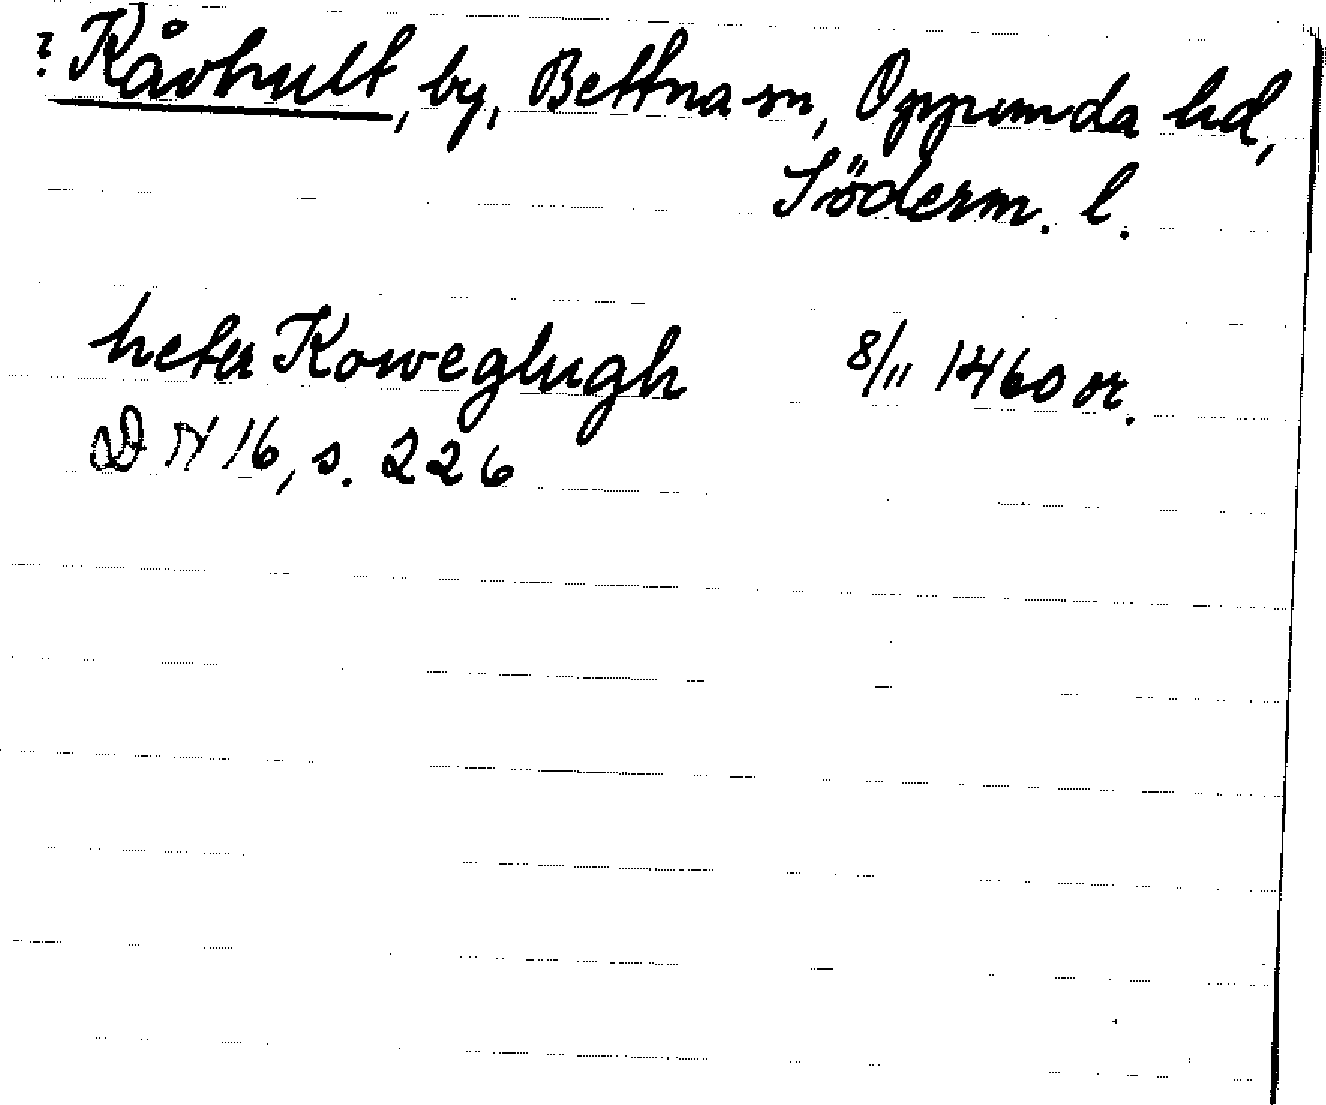 ? Kåvhult, by, Bettna sn, Oppunda hd,
Söderm. l.
heter Koweglugh 8/11 1460 or.
DN 16, s. 226